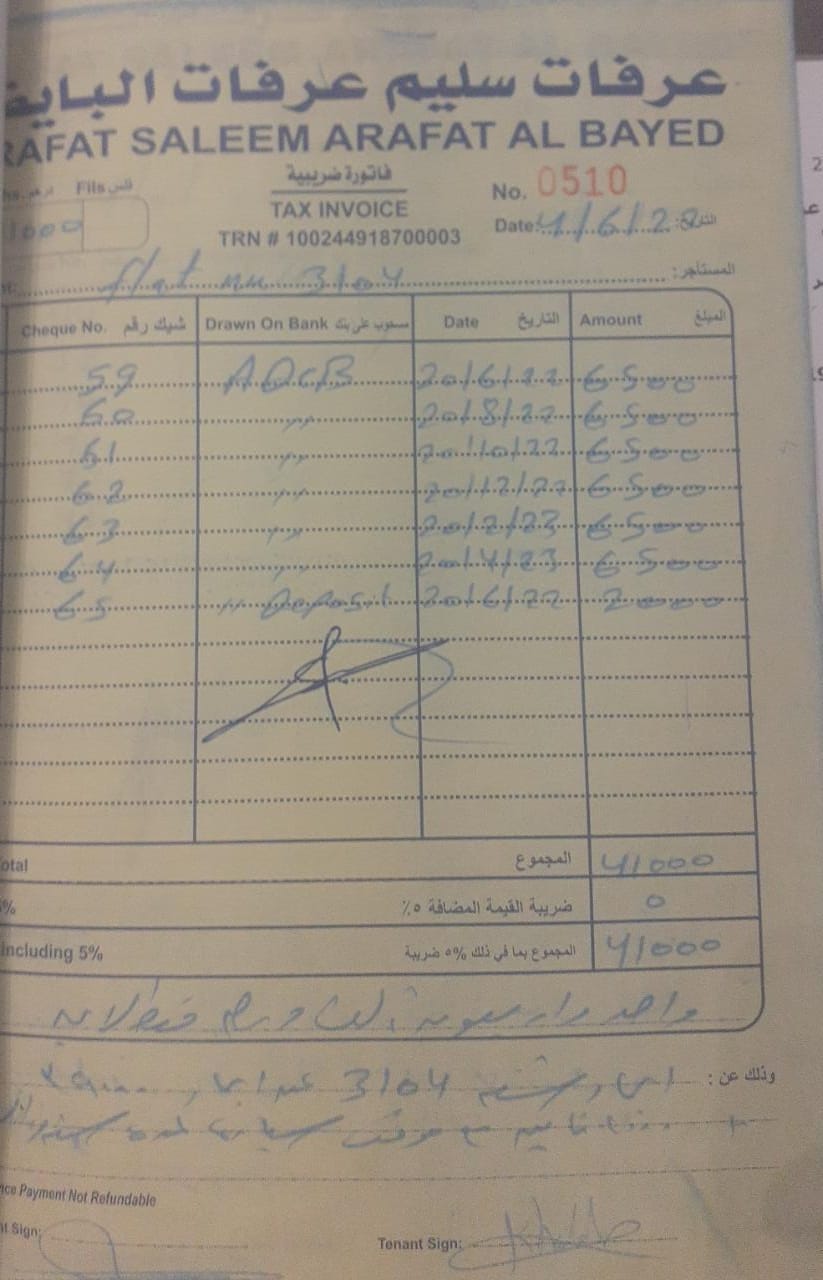 عرفات سليم عرفات البايض
RAFAT SALEEM ARAFAT AL BAYED
Fils فلس درهم
فاتورة ضريبية
No. 0510
TAX INVOICE
1000
TRN # 100244918700003
Date: 4/6/22 التاريخ:
flat 3104 المستأجر:
Cheque No. شيك رقم Drawn On Bank مسحوب على بنك Date التاريخ Amount المبلغ
59 ADCB 20/6/22 6500
60 " 20/8/22 6500
61 " 20/10/22 6500
62 " 20/12/22 6500
63 " 20/2/23 6500
64 " 20/4/23 6500
65 " Deposit 20/6/22 2000
otal المجموع 41000
% ضريبة القيمة المضافة ٥٪ 0
including 5% المجموع بما في ذلك ٥% ضريبة 41000
واحد واربعون الف درهم فقط لا غير
وذلك عن: 3104
nce Payment Not Refundable
nt Sign:
Tenant Sign: